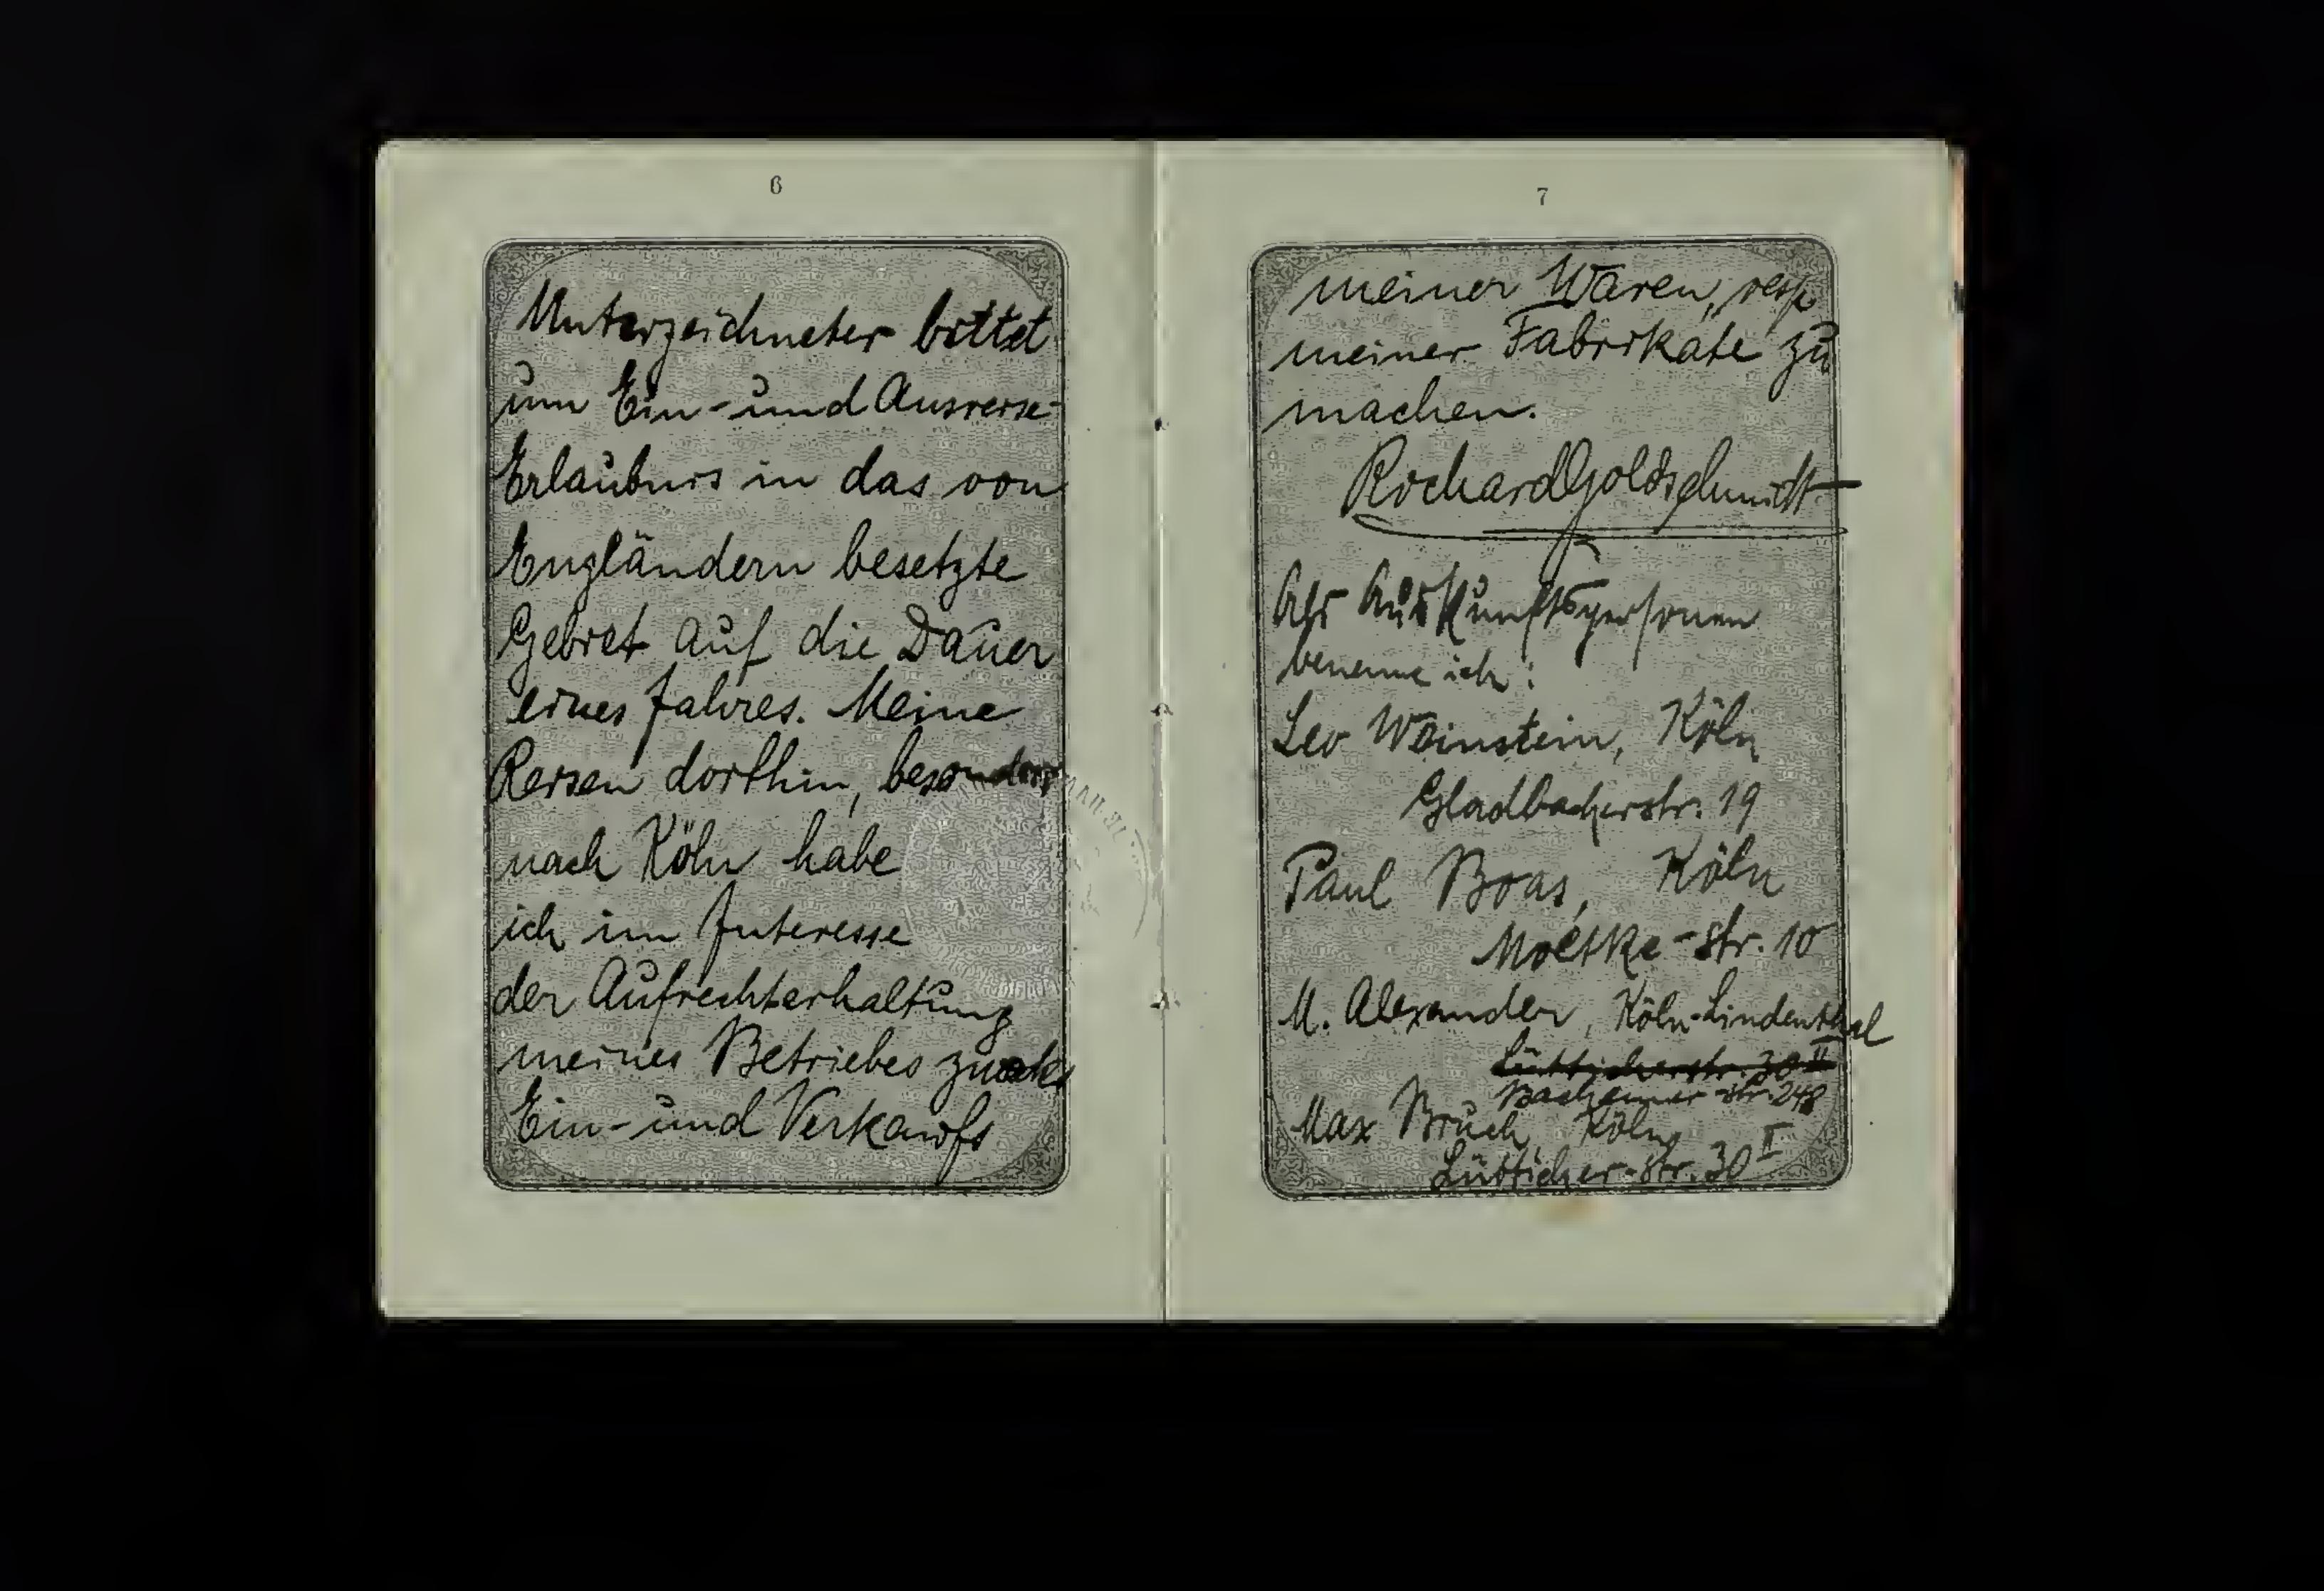 6
Unterzeichneter bittet
um Ein- und Ausreise-
Erlaubnis in das von
Engländern besetzte
Gebiet auf die Dauer
eines Jahres. Meine
Reisen dorthin, besonders
nach Köln habe
ich im Interesse
der Aufrechterhaltung
meines Betriebes zwecks
Ein- und Verkaufs
7
meiner Waren, resp
meiner Fabrikate zu
machen.
Richard Goldschmidt
Als Auskunftspersonen
benenne ich:
Leo Weinstein, Köln
Gladbacherstr. 19
Paul Boas, Köln
Moltke-str. 10
M. Alexander, Köln-Lindenthal
Lütticherstr. 30 II
Bachemer-str. 248
Max Bruch, Köln
Lütticher-str. 30 II